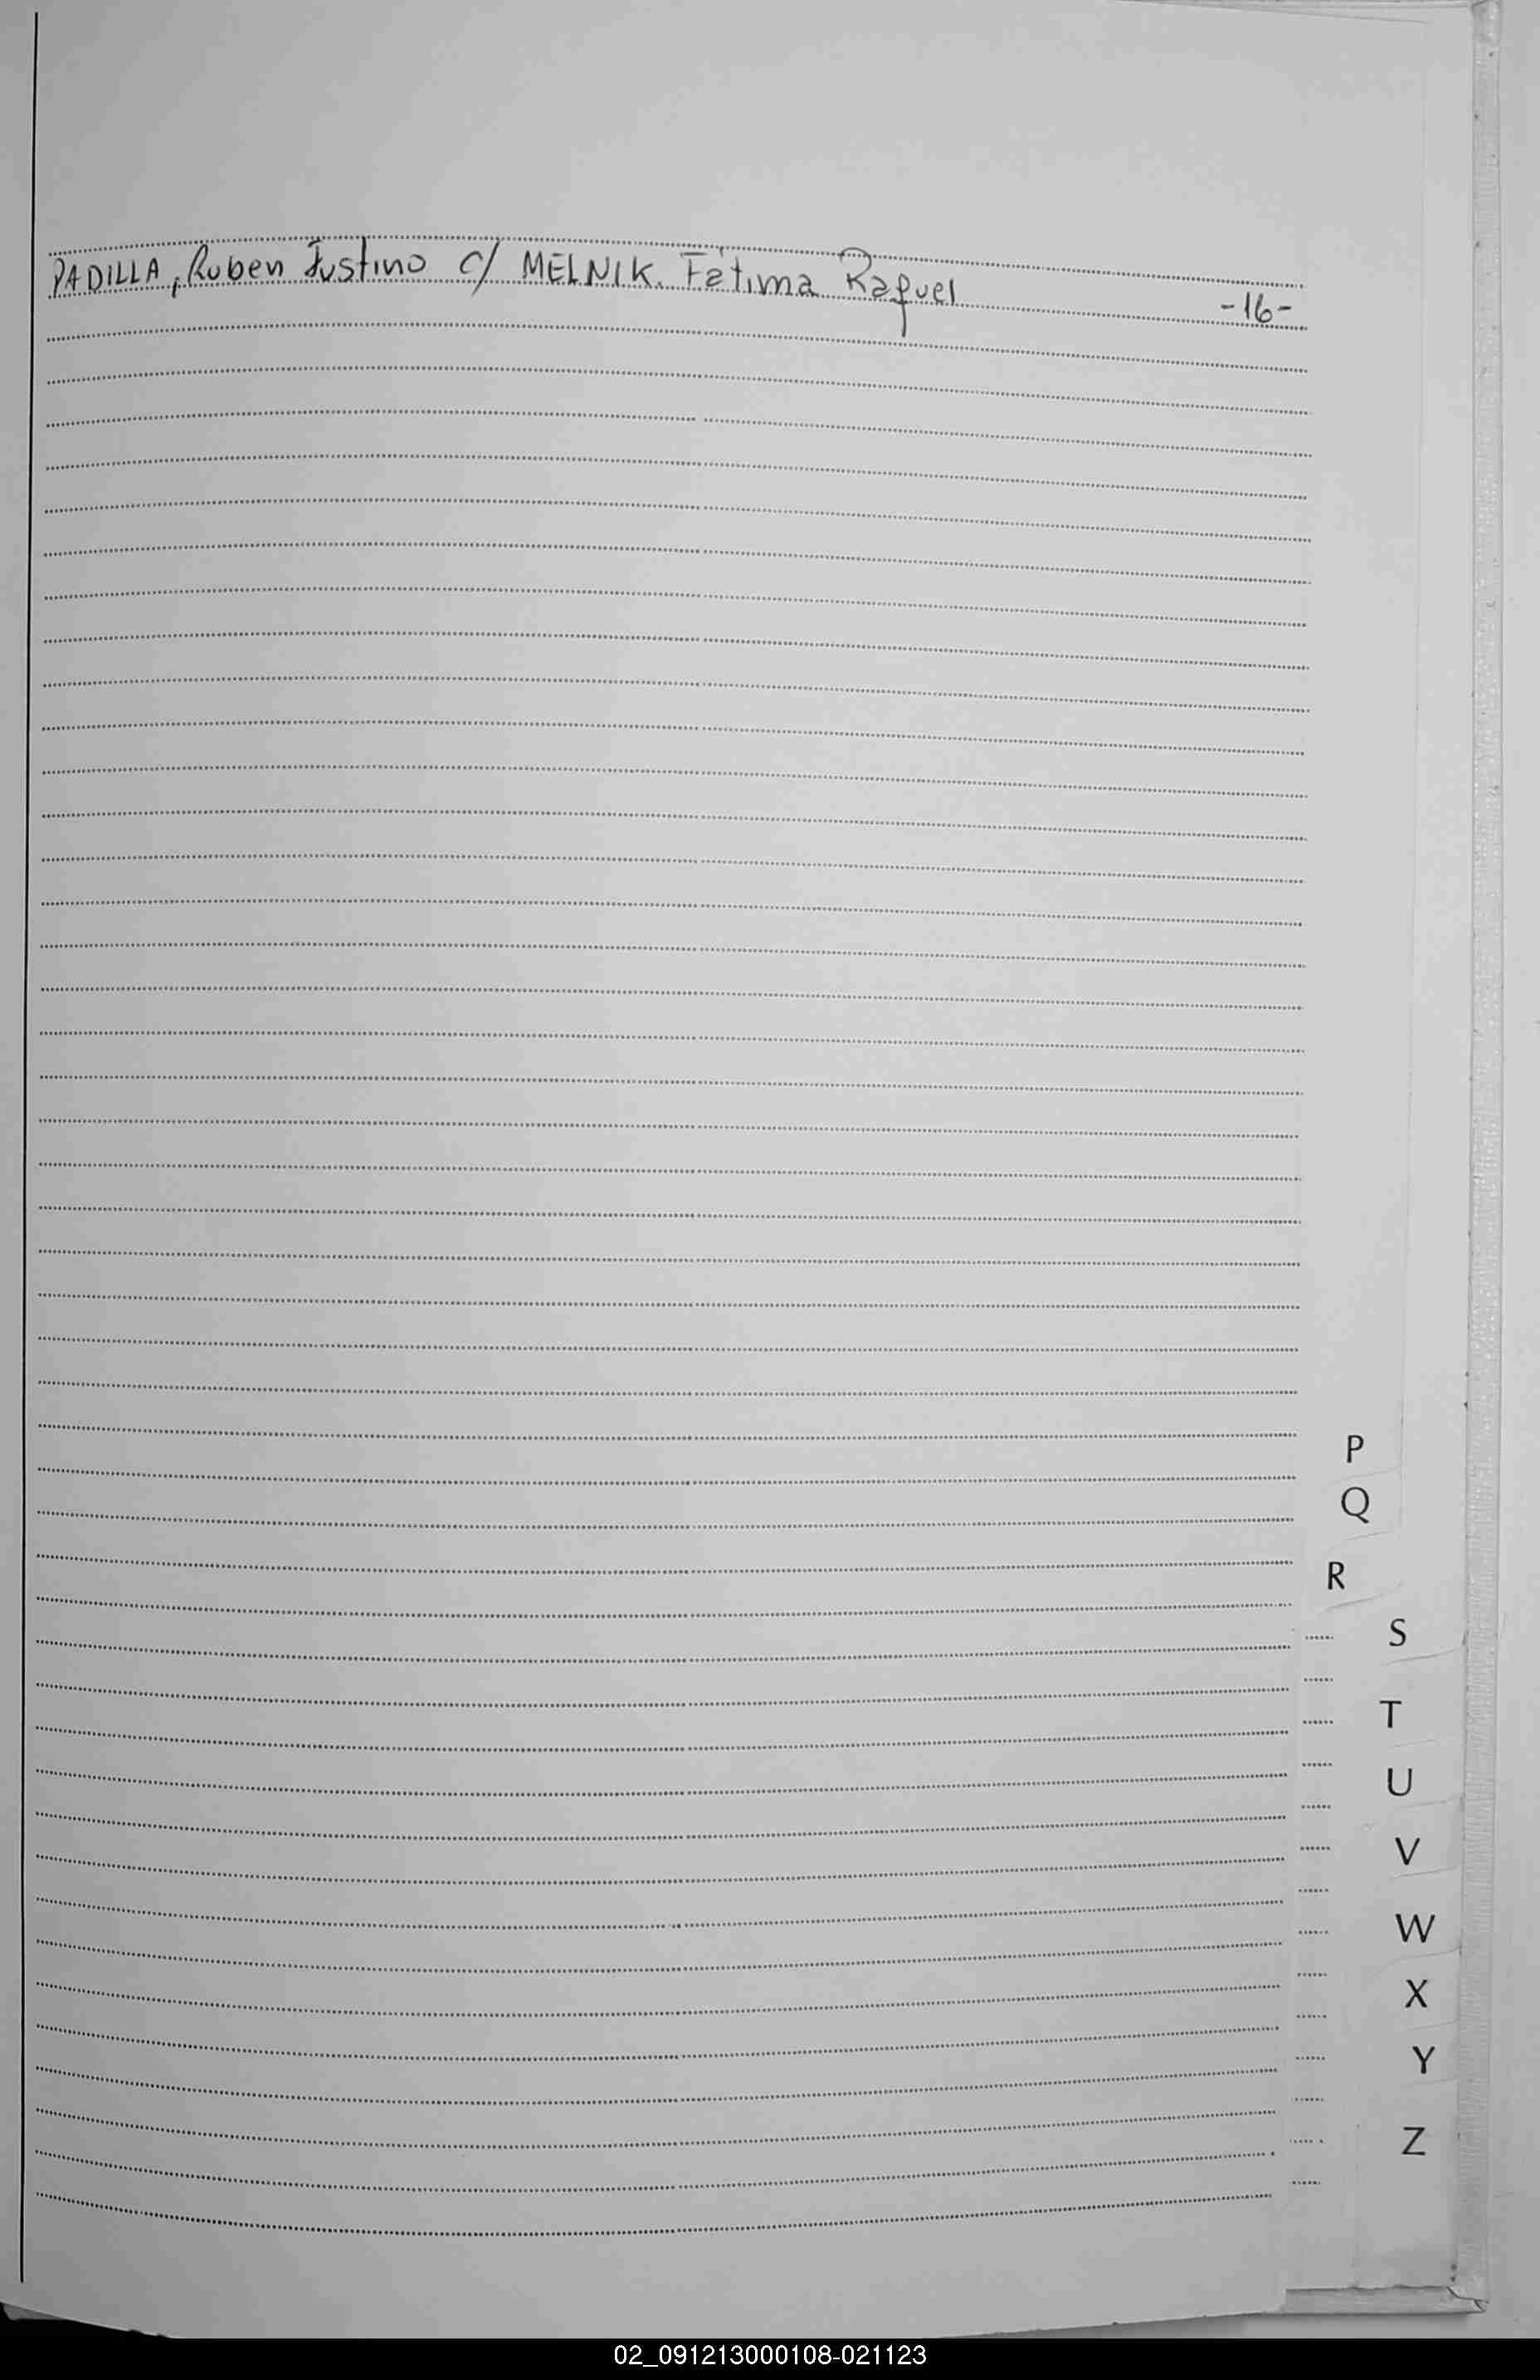 PADILLA, Ruben Justino c/ MELNIK. Fátima Raquel -16-
P
Q
R
S
T
U
V
W
X
Y
Z
02_091213000108-021123